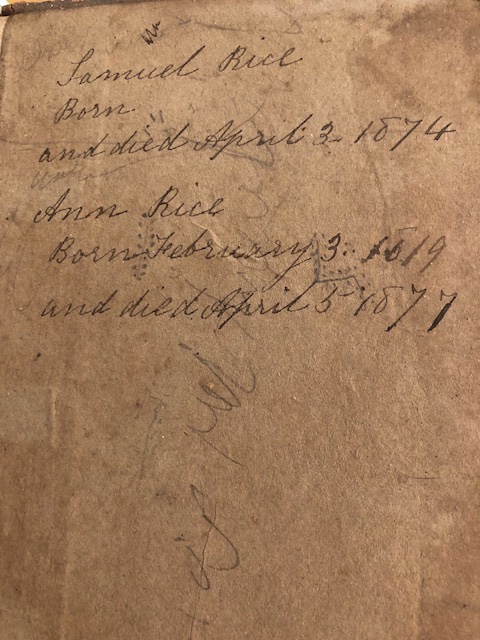 Samuel Rice
Born
and died April 3 1874
Ann Rice
Born February 3. 1819
and died April 5 1877